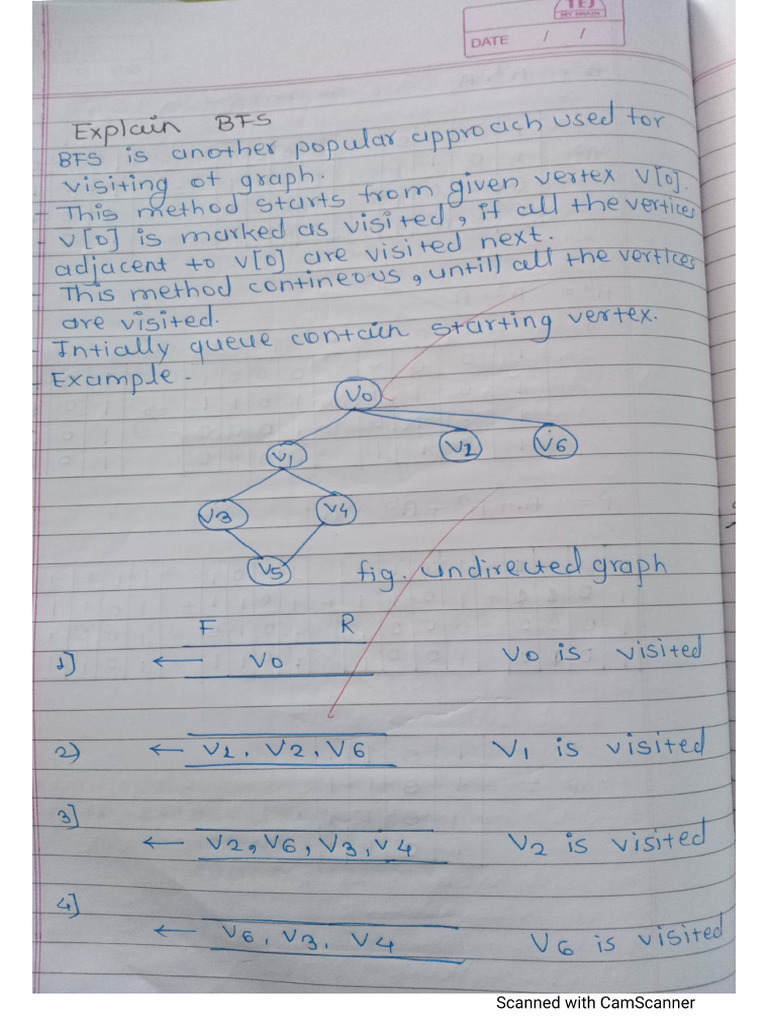 TEJ
MY BRAIN
DATE / /
Explain BFS
BFS is another popular approach used for
visiting of graph.
- This method starts from given vertex V[0].
- V[0] is marked as visited, if all the vertices
adjacent to V[0] are visited next.
- This method contineous, untill all the vertices
are visited.
- Intially queue contain starting vertex.
- Example -
V0
V1 V2 V6
V3 V4
V5
fig. undirected graph
F R
1] ← V0. V0 is visited
2) ← V1, V2, V6 V1 is visited
3] ← V2, V6, V3, V4 V2 is visited
4] ← V6, V3, V4 V6 is visited
Scanned with CamScanner